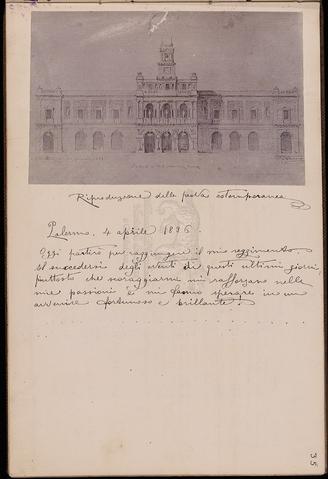 Riproduzione della prova estemporanea
Palermo, 4 aprile 1896.
Oggi partirò per raggiungere il mio reggimento.
Il succedersi degli eventi di questi ultimi giorni,
piuttosto che scoraggiarmi mi rafforzano nelle
mie passioni e mi fanno sperare in un
avvenire fortunoso e brillante!
35